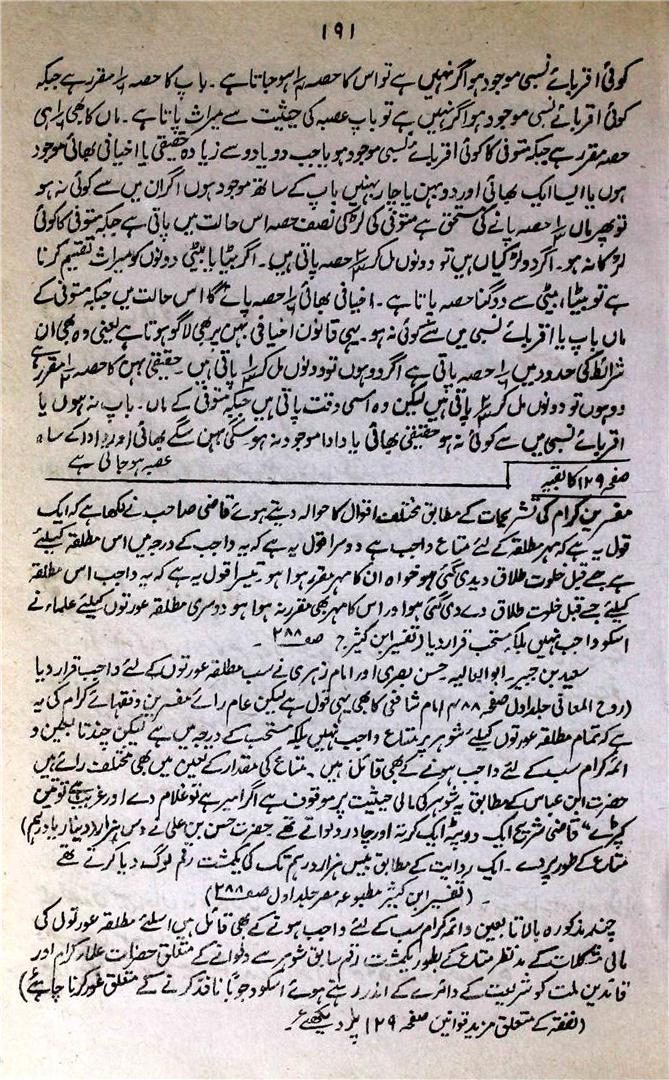 ۱۹۱
کوئی اقربائے نسبی موجود ہو اگر نہیں ہے تو اس کا حصہ ہو جاتا ہے۔ باپ کا حصہ مقرر ہے جبکہ
کوئی اقربائے نسبی موجود ہو اگر نہیں ہے تو باپ عصبہ کی حیثیت سے میراث پاتا ہے۔ ماں کا بھی ہی
حصہ مقرر ہے جبکہ متوفی کا کوئی اقربائے نسبی موجود ہو یا جب دو یا دو سے زیادہ حقیقی یا اخیافی بھائی موجود
ہوں یا ایسا ایک بھائی اور دو بہن یا چار بہنیں باپ کے ساتھ موجود ہوں اگر ان میں سے کوئی نہ ہو
تو پھر ماں حصہ پانے کی مستحق ہے متوفی کی لڑکی نصف حصہ اس حالت میں پاتی ہے جبکہ متوفی کا کوئی
لڑکا نہ ہو۔ اگر دو لڑکیاں ہیں تو دونوں مل کر حصہ پاتی ہیں۔ اگر بیٹا یا بیٹی دونوں کو میراث تقسیم کرنا
ہے تو بیٹا، بیٹی سے دوگنا حصہ پاتا ہے۔ اخیافی بھائی حصہ پائے گا اس حالت میں جبکہ متوفی کے
ماں باپ یا اقربائے نسبی میں سے کوئی نہ ہو۔ یہی قانون اخیافی بہن پر بھی لاگو ہوتا ہے یعنی وہ بھی ان
شرائط کی حدود میں حصہ پاتی ہے اگر دو ہوں تو دونوں مل کر پاتی ہیں۔ حقیقی بہن کا حصہ مقرر ہے
دو ہوں تو دونوں مل کر پاتی ہیں لیکن وہ اسی وقت پاتی ہیں جبکہ متوفی کے ماں۔ باپ نہ ہوں یا
اقربائے نسبی میں سے کوئی نہ ہو حقیقی بھائی یا دادا موجود نہ ہو سگی بہن سگے بھائی اور دادا کے ساتھ
عصبہ ہو جاتی ہے
صفحہ ۱۲۹ کا بقیہ
مفسرین کرام کی تشریحات کے مطابق مختلف اقوال کا حوالہ دیتے ہوئے قاضی صاحب نے لکھا ہے کہ ایک
قول یہ ہے کہ ہر مطلقہ کے لئے متاع واجب ہے دوسرا قول یہ ہے کہ یہ واجب کے درجہ میں اس مطلقہ کیلئے
ہے جسے قبل خلوت طلاق دیدی گئی ہو خواہ ان کا مہر مقرر ہوا ہو۔ تیسرا قول یہ ہے کہ یہ واجب اس مطلقہ
کیلئے جسے قبل خلوت طلاق دے دی گئی ہو اور اس کا مہر بھی مقرر نہ ہوا ہو دوسری مطلقہ عورتوں کیلئے علماء نے
اسکو واجب نہیں بلکہ مستحب قرار دیا (تفسیر ابن کثیر ج صہ ۲۸۸۔
سعید بن جبیر۔ ابو العالیہ۔ حسن بصری اور امام زہری نے سب مطلقہ عورتوں کے لئے واجب قرار دیا
(روح المعانی جلد اول صفحہ ۴۸۸ امام شافعی کا بھی یہی قول ہے لیکن عام رائے مفسرین و فقہائے کرام کی یہ
ہے کہ تمام مطلقہ عورتوں کیلئے شوہر پر متاع واجب نہیں بلکہ مستحب کے درجہ میں ہے لیکن چند تابعین و
ائمہ کرام سب کے لئے واجب ہونے کے بھی قائل ہیں۔ متاع کی مقدار کے تعین میں بھی مختلف رائے ہیں
حضرت ابن عباس کے مطابق یہ شوہر کی مالی حیثیت پر موقوف ہے اگر امیر ہے تو غلام دے اور غریب ہے تو تین
کپڑے" قاضی شریح ایک دوپٹہ ایک کرتہ اور چادر دلواتے تھے حضرت حسن بن علی نے دس ہزار (دینار یا درہم)
متاع کے طور پر دے۔ ایک روایت کے مطابق بیس ہزار درہم تک کی یکمشت رقم لوگ دیا کرتے تھے
۔ (تفسیر ابن کثیر مطبوعہ مصر جلد اول صہ ۲۸۸)
چند مذکورہ بالا تابعین و ائمہ کرام سب کے لئے واجب ہونے کے بھی قائل ہیں اسلئے مطلقہ عورتوں کی
مالی مشکلات کے مدنظر متاع کے بطور یکمشت رقم سابق شوہر سے دلوانے کے متعلق حضرات علماء کرام اور
قائدین ملت کو شریعت کے دائرے کے اندر رہتے ہوئے اسکو وجوباً نافذ کرنے کے متعلق غور کرنا چاہئے)
(نفقہ کے متعلق مزید قوانین صفحہ ۱۲۹ پر دیکھئے